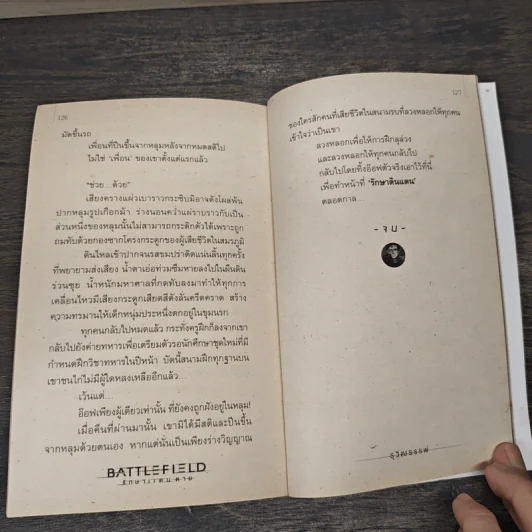 126
มัดขึ้นรถ
เพื่อนที่ปีนขึ้นจากหลุมหลังจากหมดสติไป
ไม่ใช่ 'เพื่อน' ของเขาตั้งแต่แรกแล้ว
"ช่วย...ด้วย"
เสียงครางแผ่วเบาราวกระซิบมิอาจดังโผล่พ้น
ปากหลุมรูปเกือกม้า ร่างงอนคว่ำแผ่ราบราวกับเป็น
ส่วนหนึ่งของหลุมนั้นไม่สามารถกระดิกตัวได้เพราะถูก
ถมทับด้วยกองซากโครงกระดูกของผู้เสียชีวิตในสมรภูมิ
ดินไหลเข้าปากจนรสขมปร่าติดแน่นลิ้นทุกครั้ง
ที่พยายามส่งเสียง น้ำตาเอ่อท่วมซึมหายลงไปในผืนดิน
ร่วนซุย น้ำหนักมหาศาลที่กดทับลงมาทำให้ทุกการ
เคลื่อนไหวมีเสียงกระดูกเสียดสีดังลั่นกรีดคราด สร้าง
ความทรมานให้เด็กหนุ่มประหนึ่งตกอยู่ในขุมนรก
ทุกคนกลับไปหมดแล้ว กระทั่งครูฝึกก็ลงจากเขา
กลับไปยังค่ายทหารเพื่อเตรียมตัวรอนักศึกษาชุดใหม่ที่มี
กำหนดฝึกวิชาทหารในปีหน้า บัดนี้สนามฝึกทุกฐานบน
เขาชนไก่ไม่มีผู้ใดหลงเหลืออีกแล้ว...
เว้นแต่...
อ๊อฟเพียงผู้เดียวเท่านั้น ที่ยังคงถูกฝังอยู่ในหลุม!
เมื่อคืนที่ผ่านมานั้น เขามิได้มีสติและปีนขึ้น
จากหลุมด้วยตนเอง หากแต่นั่นเป็นเพียงร่างวิญญาณ
BATTLEFIELD
127
ของใครสักคนที่เสียชีวิตในสนามรบที่ลวงหลอกให้ทุกคน
เข้าใจว่าเป็นเขา
ลวงหลอกเพื่อให้การฝึกลุล่วง
และลวงหลอกให้ทุกคนกลับไป
กลับไปโดยทิ้งอ๊อฟตัวจริงเอาไว้ที่นี่
เพื่อทำหน้าที่ 'รักษาดินแดน'
ตลอดกาล...
- จบ -